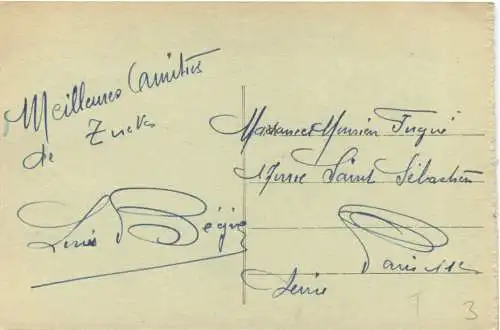 Meilleures Amitiés
de Zurich
Louis Bégué
Madame Monsieur Fugué
17 rue Saint Sébastien
Paris XIe
Seine
3